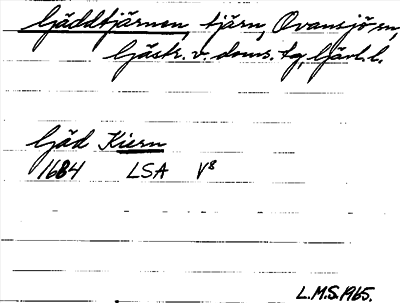 Gäddtjärnen, tjärn, Ovansjö sn,
Gästr. v. doms. tg, Gävl. l.
Gäd Kiern
1684 LSA V8
L.M.S. 1965.